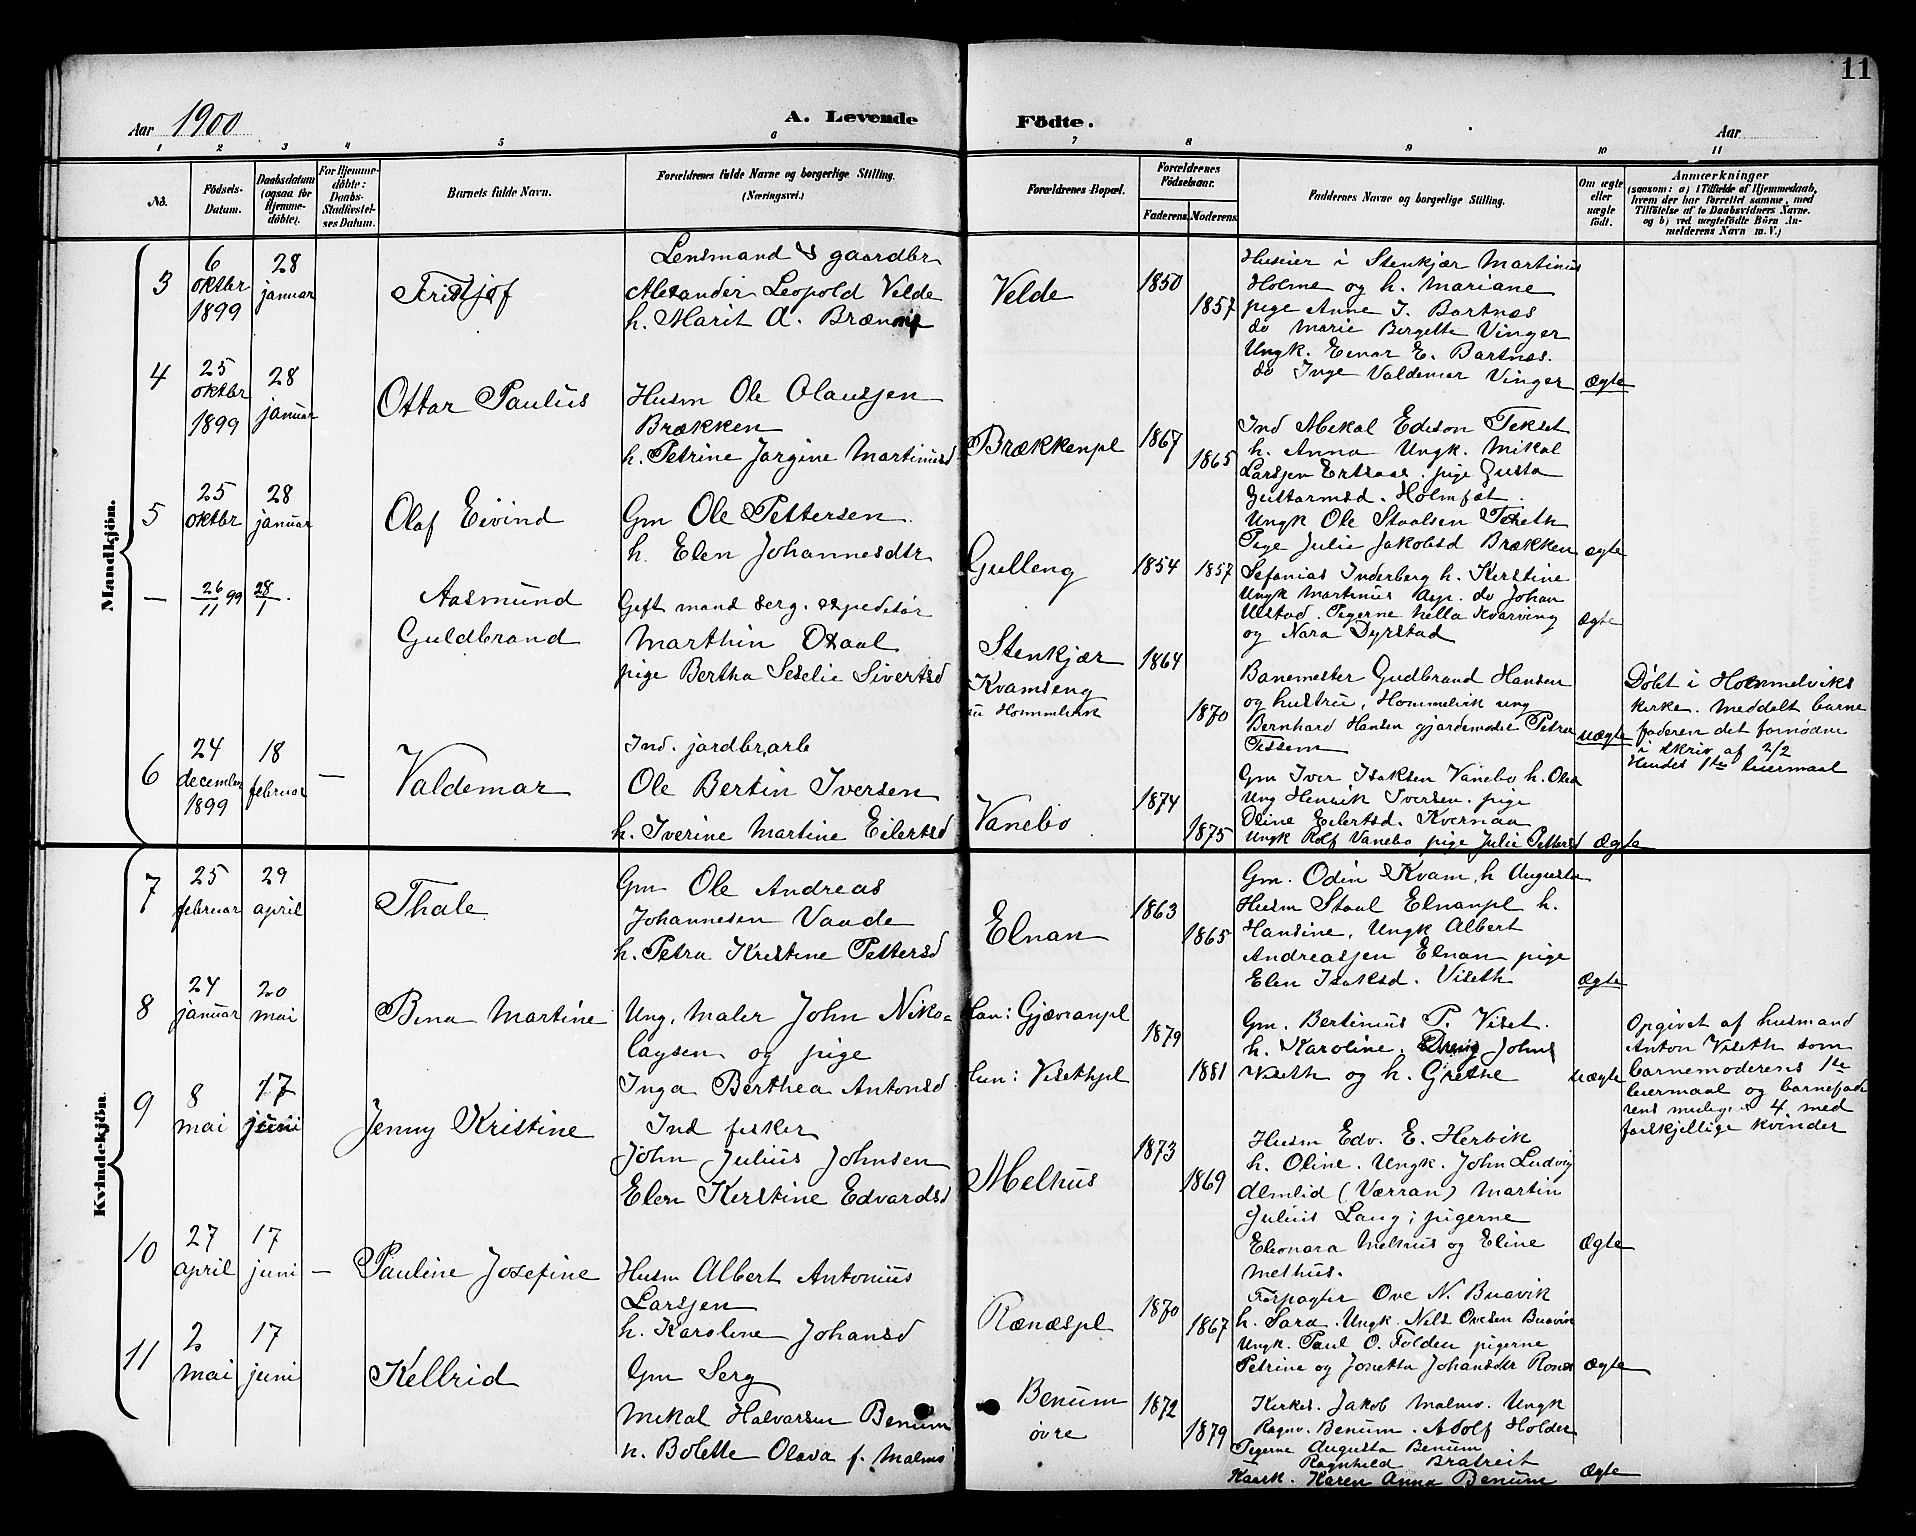 11
Aar 1900
A. Levende
Födte.
Aar
1 2 3 4 5 6 7 8 9 10 11
No.
Födsels-Datum.
Daabsdatum (ogsaa for Hjemmedöbte).
For Hjemmedöbte: Daabs-Stadfæstelses Datum.
Barnets fulde Navn.
Forældrenes fulde Navne og borgerlige Stilling. (Næringsvei.)
Forældrenes Bopæl.
Forældrenes Födselsaar.
Faderens. Moderens.
Faddernes Navne og borgerlige Stilling.
Om ægte eller uægte födt.
Anmærkninger
(saasom: a) i Tilfælde af Hjemmedaab,
hvem der har forrettet samme, med
Tilföielse af to Daabsvidners Navne.
og b) ved uægtefödte Börn An-
melderens Navn m. V.)
Mandkjön.
3
6 oktbr 1899
28 januar
Fritjof
Lensmand & gaardbr
Alexander Leopold Velde
h. Marit A. Brænne
Velde
1850
1857
Huseier i Stenkjær Martinus
Holme og h. Mariane
pige Anne J. Bartnæs
do Marie Bergette Vinger
Ungk. Einar E. Bartnæs.
do Inge Valdemar Vinger
Ægte
4
25 oktbr 1899
28 januar
Ottar Paulus
Husm Ole Olaussen
Brækken
h. Petrine Jørgine Martinusd
Brækkenpl
1867
1865
Ind Mikal Edison Tekset
h. Anna Ungk. Mikal
Larssen pige Gusta
Holmset.
Ungk Ole Staalsen
Pige Julie Jakobsd Brækken
ægte
5
25 oktbr
28 januar
Olaf Eivind
Gm Ole Pettersen
h. Elen Johannesdtr
Gulleng
1854
1857
Sefanias Inderberg h. Kerstine
Ungk Martinus Asp. do Johan
Ulstad. Pigerne Nella Kvarving
og Nora Dyrstad
Ægte
—
26/11 99
28/1.
Aasmund
Guldbrand
Gift mand Serg. expeditør
Marthin Oxaal
pige Bertha Seselie Sivertsd
Stenkjær
Kvamseng
nu Hommelvik
1864
1870
Banemester Gudbrand Hansen
og hustru, Hommelvik ung
Bernhard Hansen gjordemoder Petra
Tessem
uægte
Døbt i Hommelviks
kirke. Meddelt barne
faderen det fornødne
i skriv af 2/2
Hendes 1ste leiermaal
6
24 december 1899
18 februar
—
Valdemar
Ind. jordbr,arb
Ole Bertin Iversen
h. Iverine Martine Eilertsd
Vanebo
1874
1875
Gm Iver Isaksen Vanebo h. Olea
Ung Henrik Iversen. pige
Oline Eilertsd. Kvernaa
Ungk Rolf Vanebo pige Julie Pettersd
Ægte
Kvindekjön.
7
25 februar
29 april
Thale
Gm Ole Andreas
Johannesen Vaade
h. Petra Kristine Pettersd
Elnan
1863
1865
Gm. Odin Kvam, h Augusta
Husm Staal Elnanpl h.
Hansine, Ungk Albert
Andreassen Elnan pige
Elen Isaksd. Viseth
Ægte
8
24 januar
20 mai
Bina Martine
Ung. Maler John Niko-
laysen og pige
Inga Berthea Antonsd
Han: Gjævranpl
Hun: Visethpl
1879
1881
Gm. Bertinius P. Viset.
h. Karoline. Dreng Johns
Viseth og h. Grethe
uægte
Opgivet af husmand
Anton Viseth som
barnemoderens 1ste
leiermaal og barnefade
rens mulige 4. med
forskjellige kvinder
9
8 mai
17 juni
Jenny Kristine
Ind fisker
John Julius Johnsen
Elen Kerstine Edvardsd
Melhus
1873
1869
Husm Edv. E. Hervik
h. Oline. Ungk. John Ludvig
Almlid (Værran) Martin
Julius Laug; pigerne
Eleonara Melhus og Eline
Melhus.
Ægte
10
27 april
17 juni
—
Pauline Josefine
Husm Albert Antonius
Larssen
h. Karoline Johansd
Rænæspl
1870
1867
Forpagter Ove N. Buavik
h. Sara. Ungk. Nils Ovesen Buavik
Ungk. Paul O. Folden pigerne
Petrine og Jonetta Johansdtr Rones
Ægte
11
2 mai
17 juni
Kellrid
Gm Serg
Mikal Halvarsen Benum
h. Bolette Olava f. Malmo
Benum
øvre
1872
1879
Kirkes. Jakob Malmo. Ungk
Ragnv. Benum. Adolf Holder
Pigerne Augusta Benum
Ragnhild Bratreit
Kaark. Karen Anna Benum
Ægte